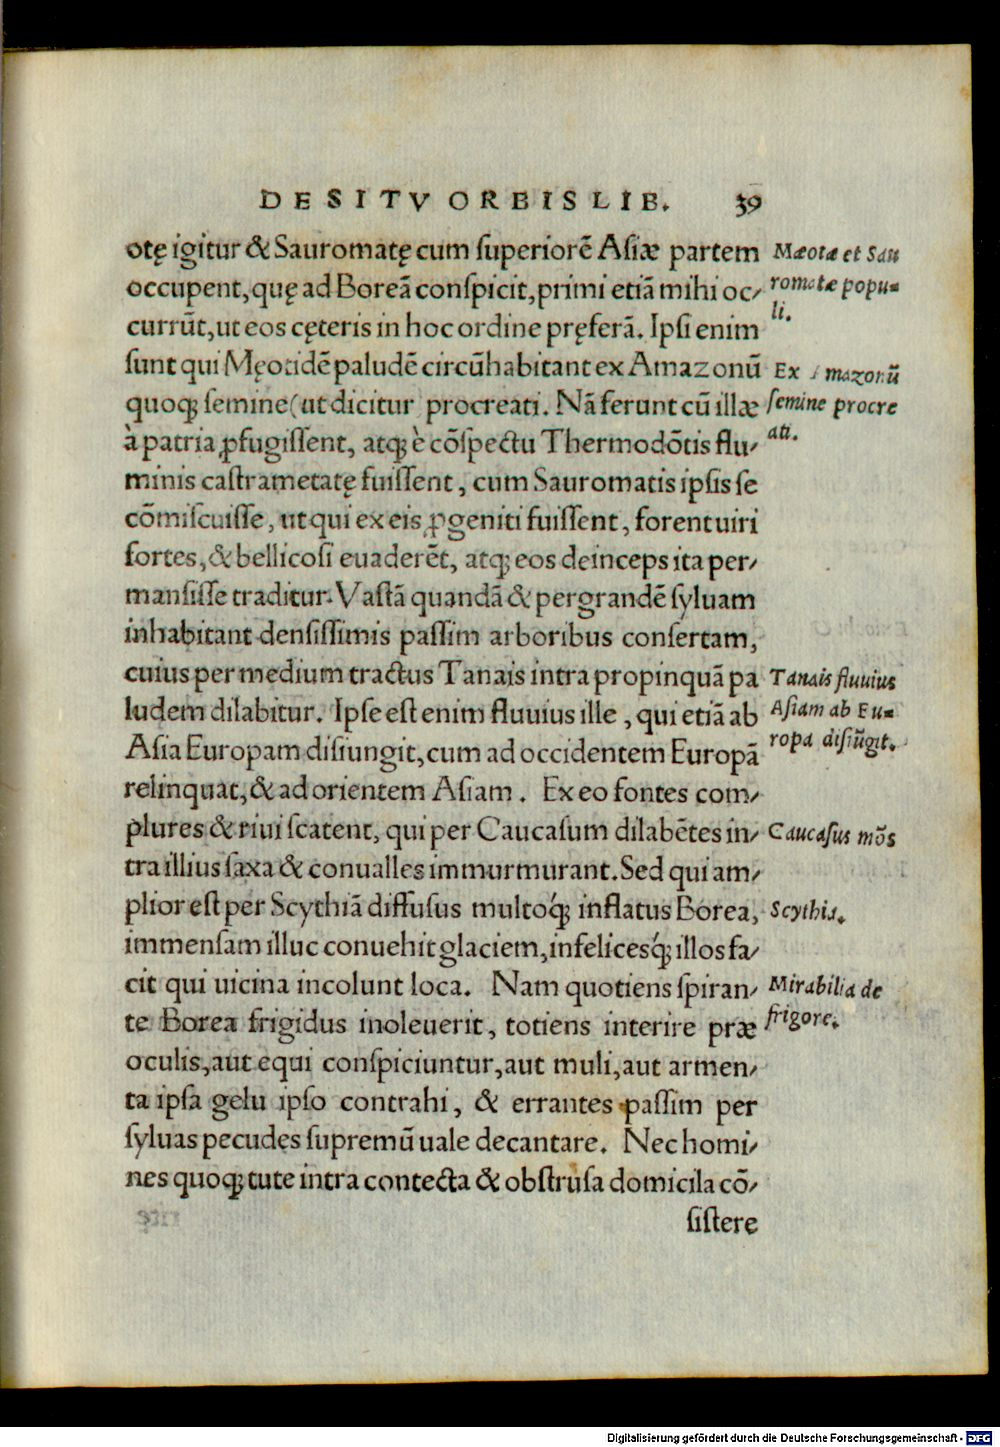 DE SITV ORBIS LIB. 39
otę igitur & Sauromatę cum ſuperiorē Aſiæ partem
occupent, quę ad Boreā conſpicit, primi etiā mihi oc⸗
currūt, ut eos cęteris in hoc ordine pręferā. Ipſi enim
ſunt qui Męotidē paludē circūhabitant ex Amazonū
quoq; ſemine (ut dicitur procreati. Nā ferunt cū illæ
à patria ꝓfugiſſent, atq; è cōſpectu Thermodōtis flu⸗
minis caſtrametatę fuiſſent, cum Sauromatis ipſis ſe
cōmiſcuiſſe, ut qui ex eis ꝓgeniti fuiſſent, forent uiri
fortes, & bellicoſi euaderēt, atq; eos deinceps ita per⸗
manſiſſe traditur. Vaſtā quandā & pergrandē ſyluam
inhabitant denſiſſimis paſſim arboribus conſertam,
cuius per medium tractus Tanais intra propinquā pa
ludem dilabitur. Ipſe eſt enim fluuius ille, qui etiā ab
Aſia Europam diſiungit, cum ad occidentem Europā
relinquat, & ad orientem Aſiam. Ex eo fontes com⸗
plures & riui ſcatent, qui per Caucaſum dilabētes in⸗
tra illius ſaxa & conualles immurmurant. Sed qui am⸗
plior eſt per Scythiā diffuſus multoq́; inflatus Borea,
immenſam illuc conuehit glaciem, infelicesq́; illos fa⸗
cit qui uicina incolunt loca. Nam quotiens ſpiran⸗
te Borea frigidus inoleuerit, totiens interire præ
oculis, aut equi conſpiciuntur, aut muli, aut armen⸗
ta ipſa gelu ipſo contrahi, & errantes paſſim per
ſyluas pecudes ſupremū uale decantare. Nec homi⸗
nes quoq; tute intra contecta & obſtruſa domicila cō⸗
ſiſtere
Mæotæ et Sau
romatæ popu⸗
li.
Ex Amazonū
ſemine procre
ati.
Tanais fluuius
Aſiam ab Eu⸗
ropa diſiūgit.
Caucaſus mōs
Scythia.
Mirabilia de
frigore.
Digitalisierung gefördert durch die Deutsche Forschungsgemeinschaft - DFG